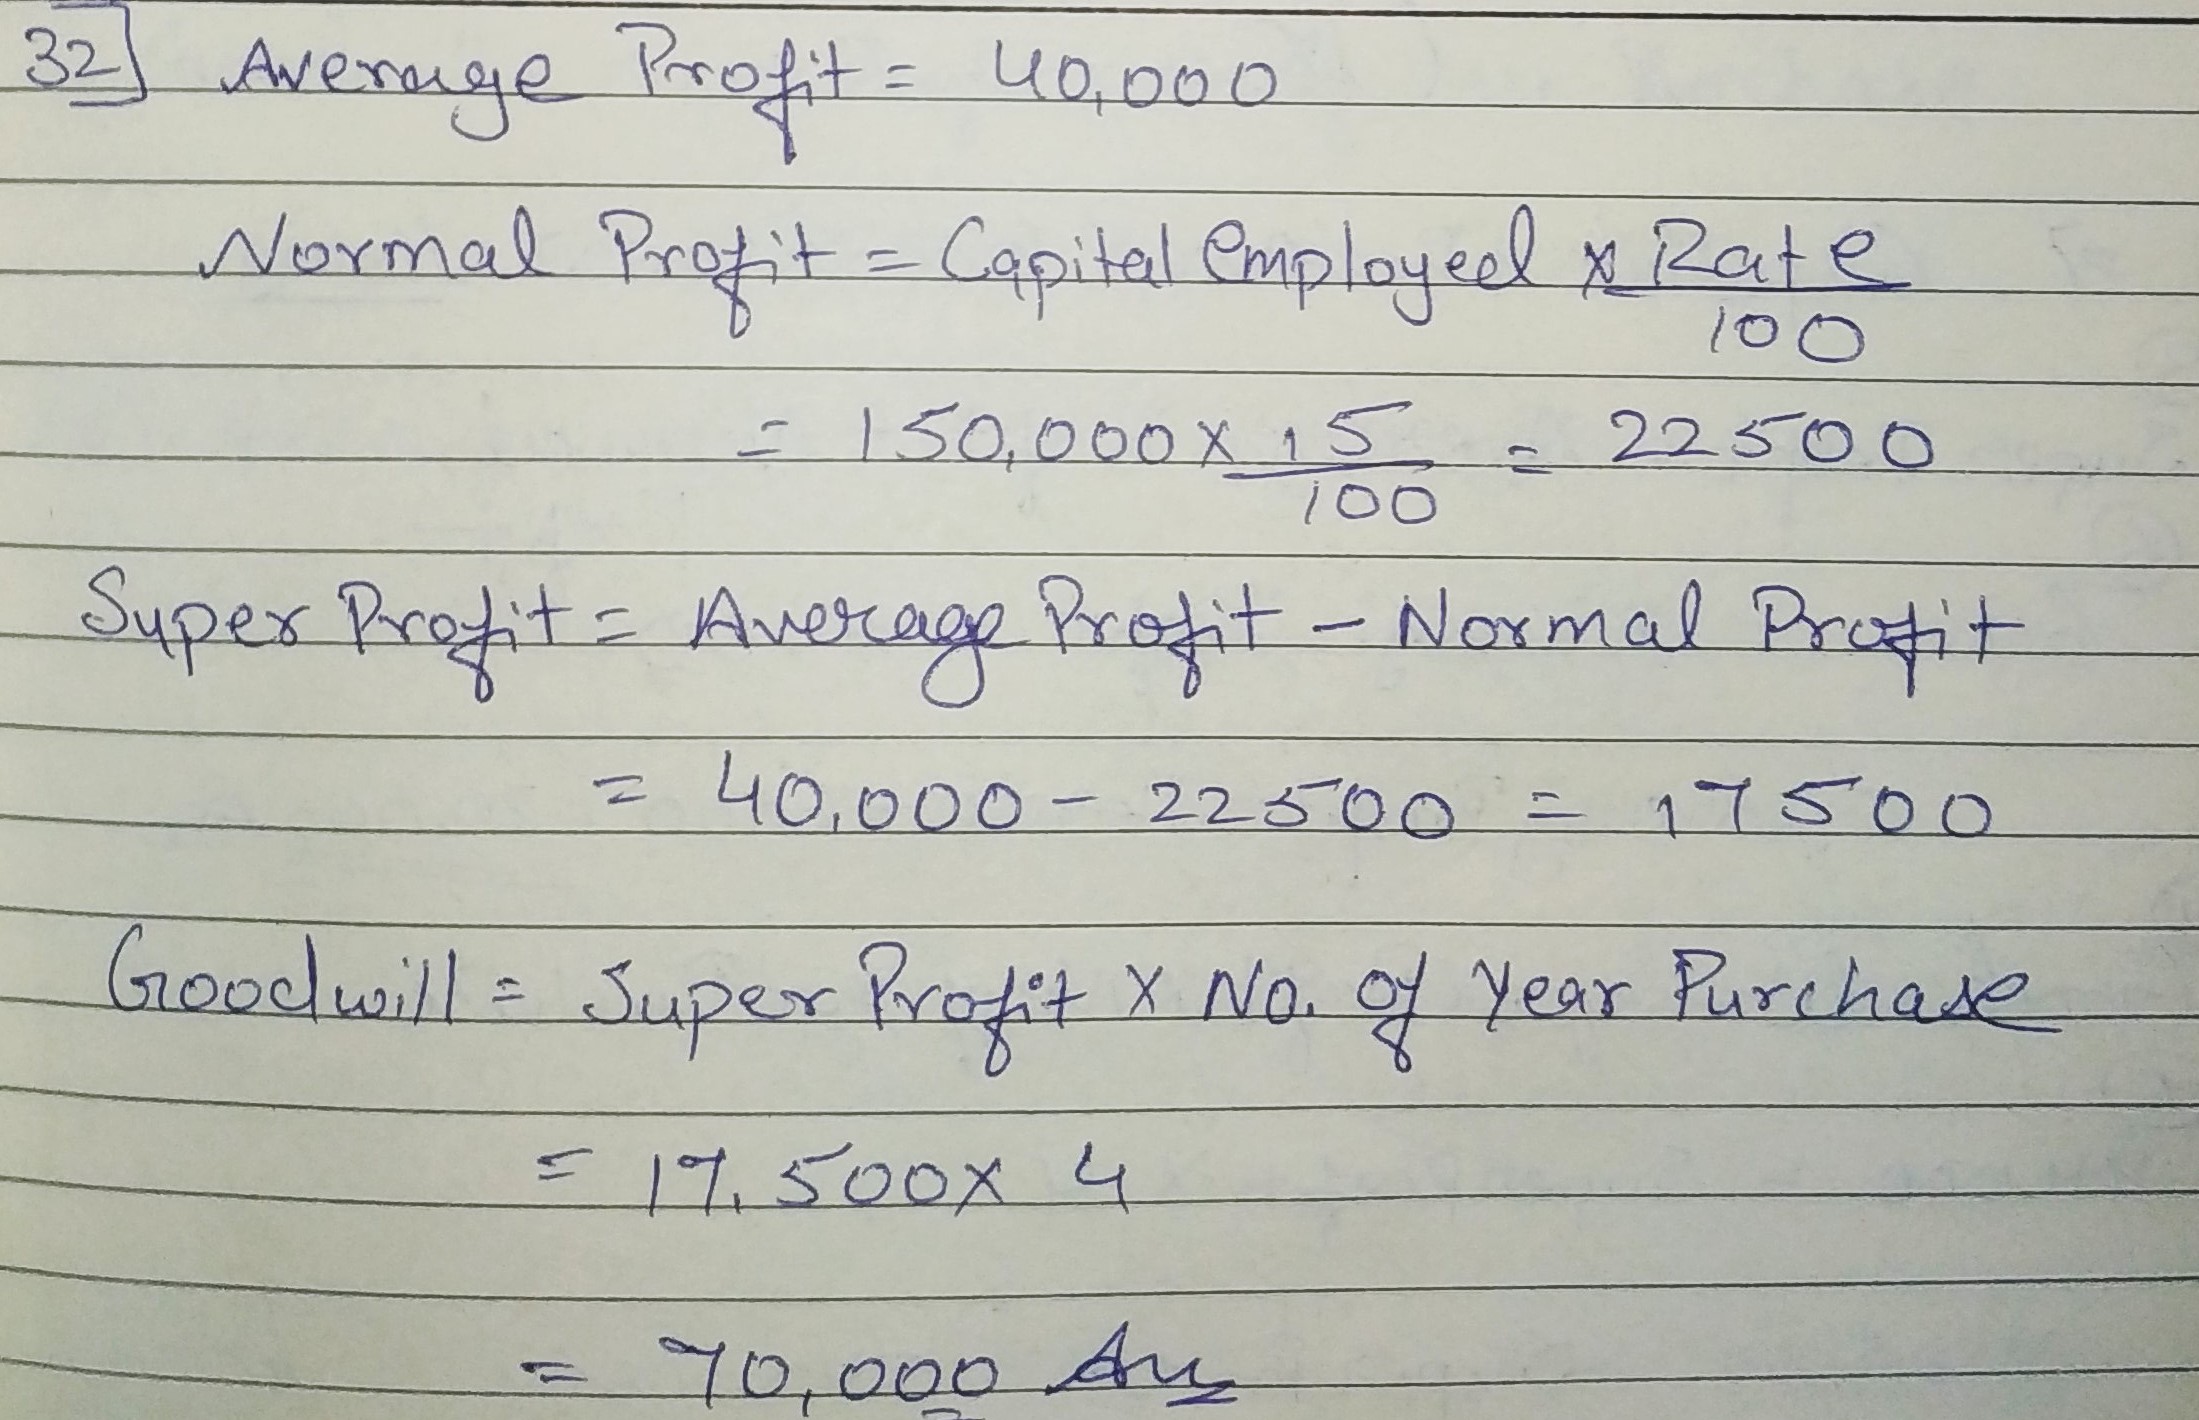 32] Average Profit = 40,000
Normal Profit = Capital Employeed x Rate
100
= 150,000 x 15 = 22500
100
Super Profit = Average Profit - Normal Profit
= 40,000 - 22500 = 17500
Goodwill = Super Profit X No. of Year Purchase
= 17,500 x 4
= 70,000 Ans